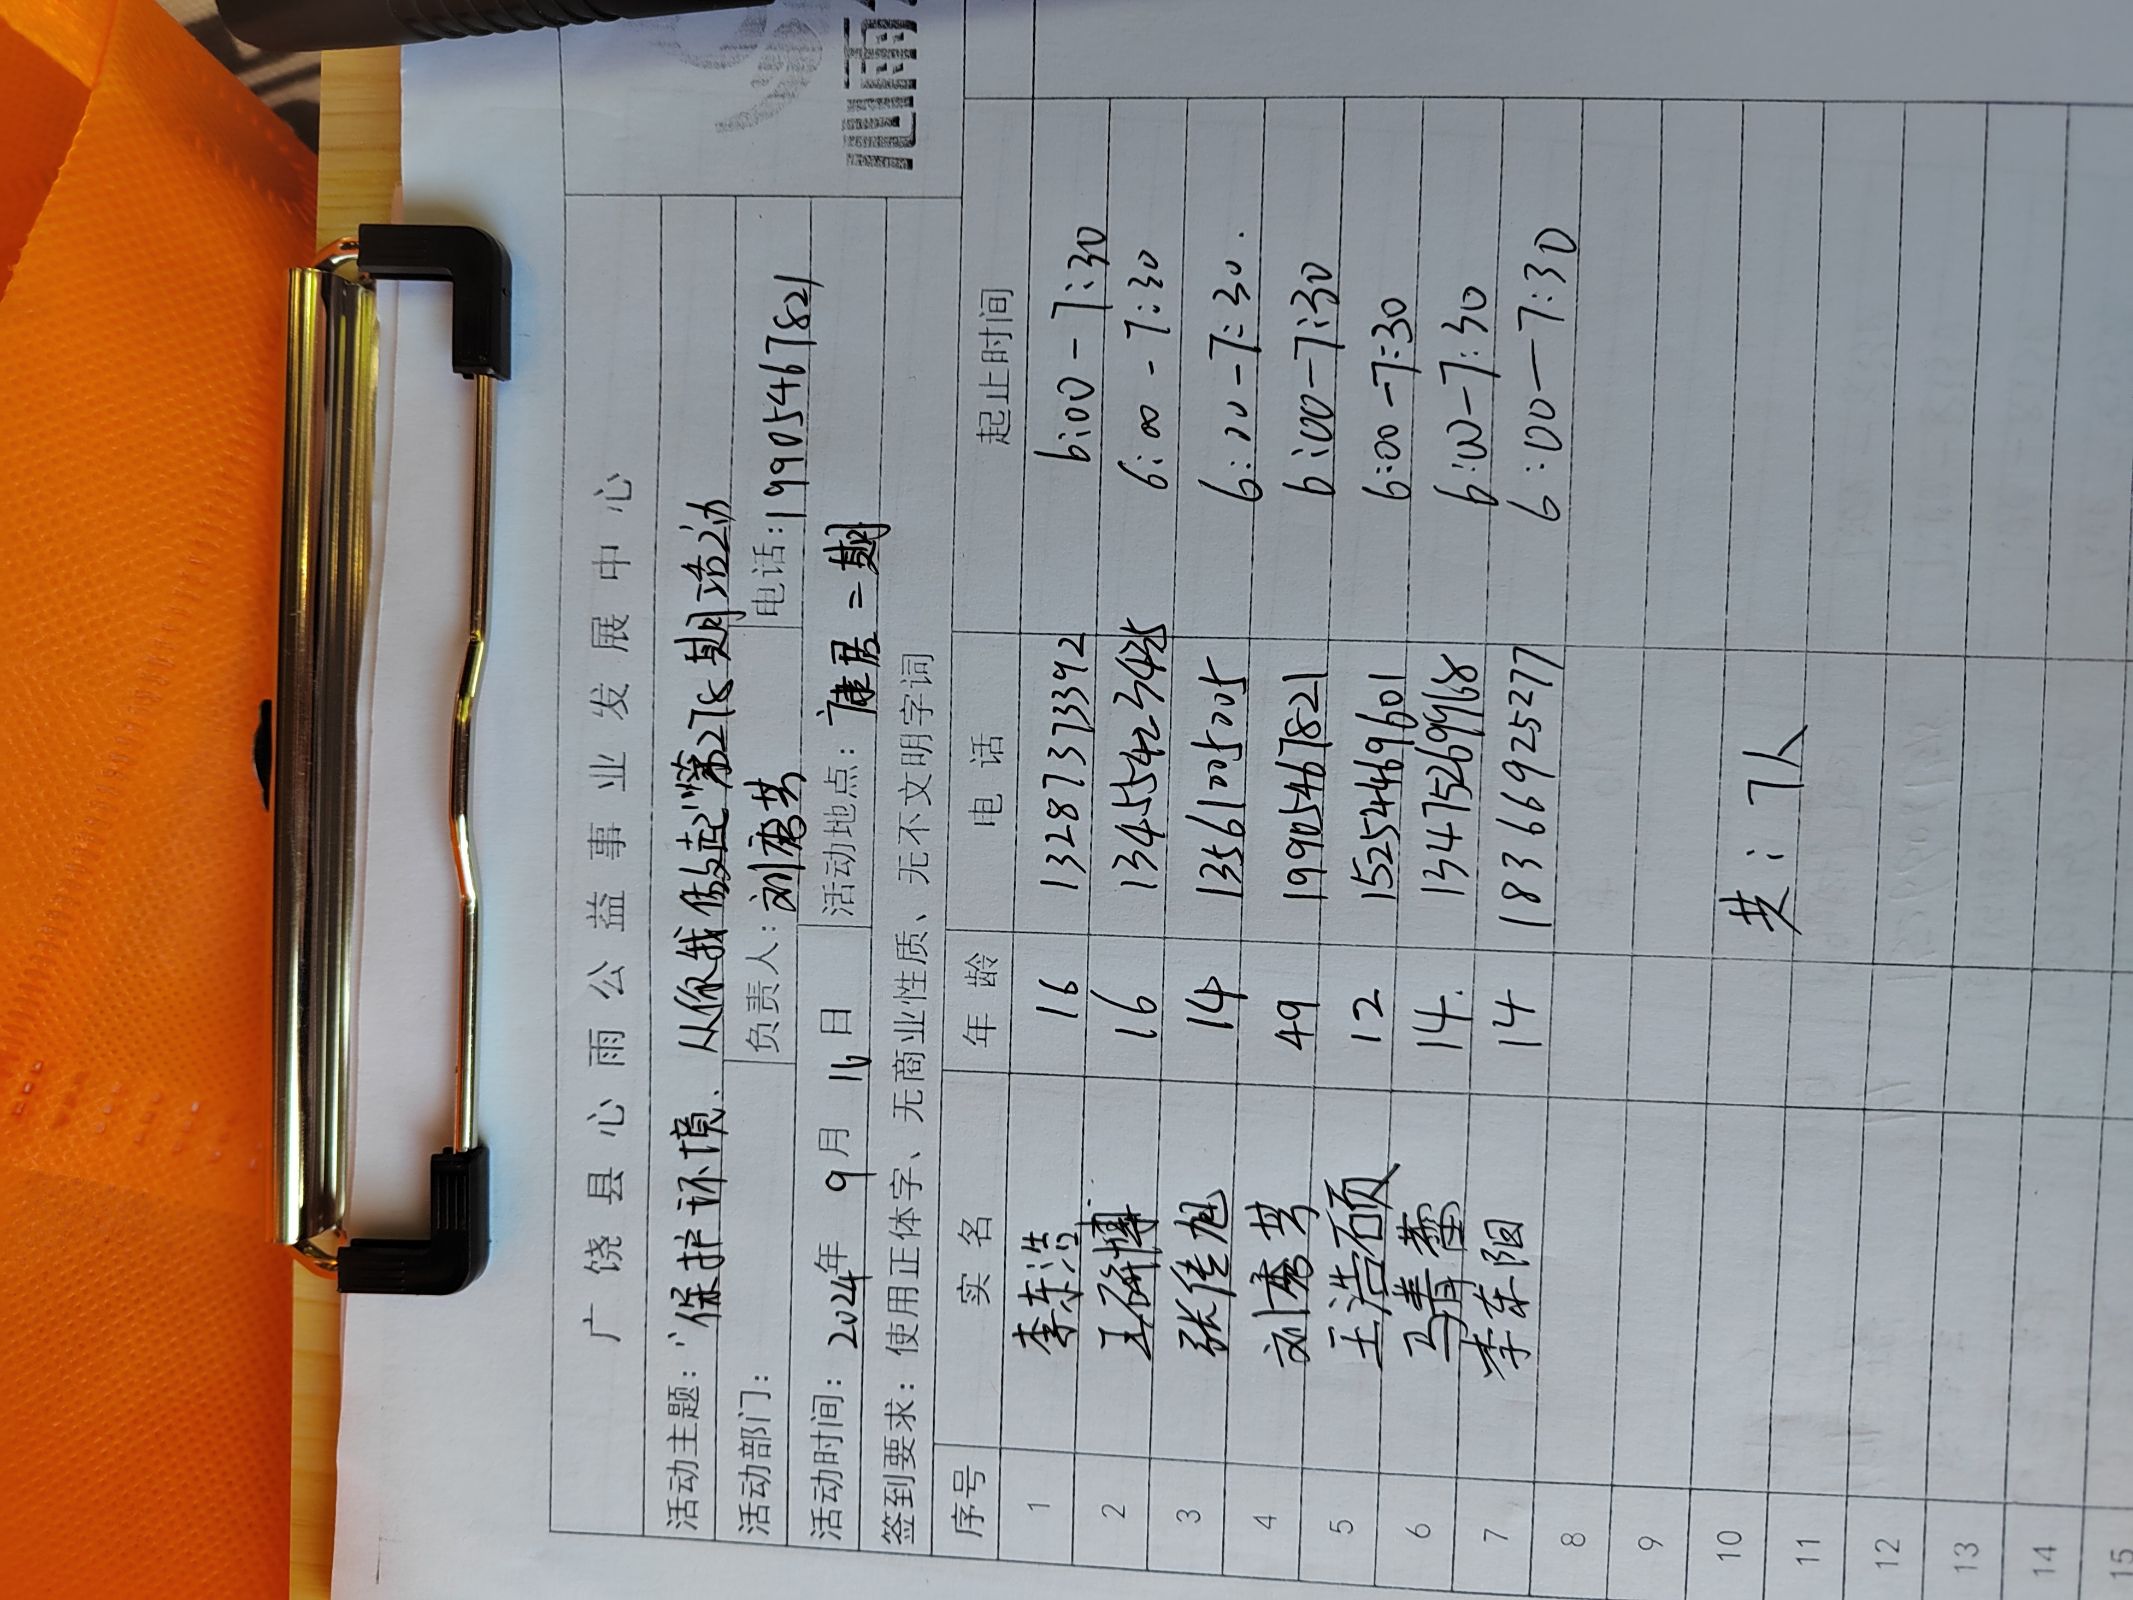 心雨
广饶县心雨公益事业发展中心
活动主题：“保护环境、从你我做起”第278期活动
活动部门： 负责人：刘秀英 电话：19905467821
活动时间：2024年 9月 16日 活动地点：康居二期
签到要求：使用正体字、无商业性质、无不文明字词
序号 实 名 年 龄 电 话 起止时间
1 李东浩 16 13287373392 6:00-7:30
2 王研博 16 6:00-7:30
3 张传旭 14 13561005005 6:00-7:30.
4 刘秀英 49 19905467821 6:00-7:30
5 王浩硕 12 15254469601 6:00-7:30
6 14. 13475269968 6:00-7:30
7 李东阳 14 18366925277 6:00-7:30
8
9
10 共：7人
11
12
13
14
15